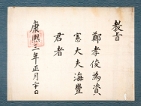 教旨
鄭孝俊為資
憲大夫海豊
君者
康熙三年正月十日